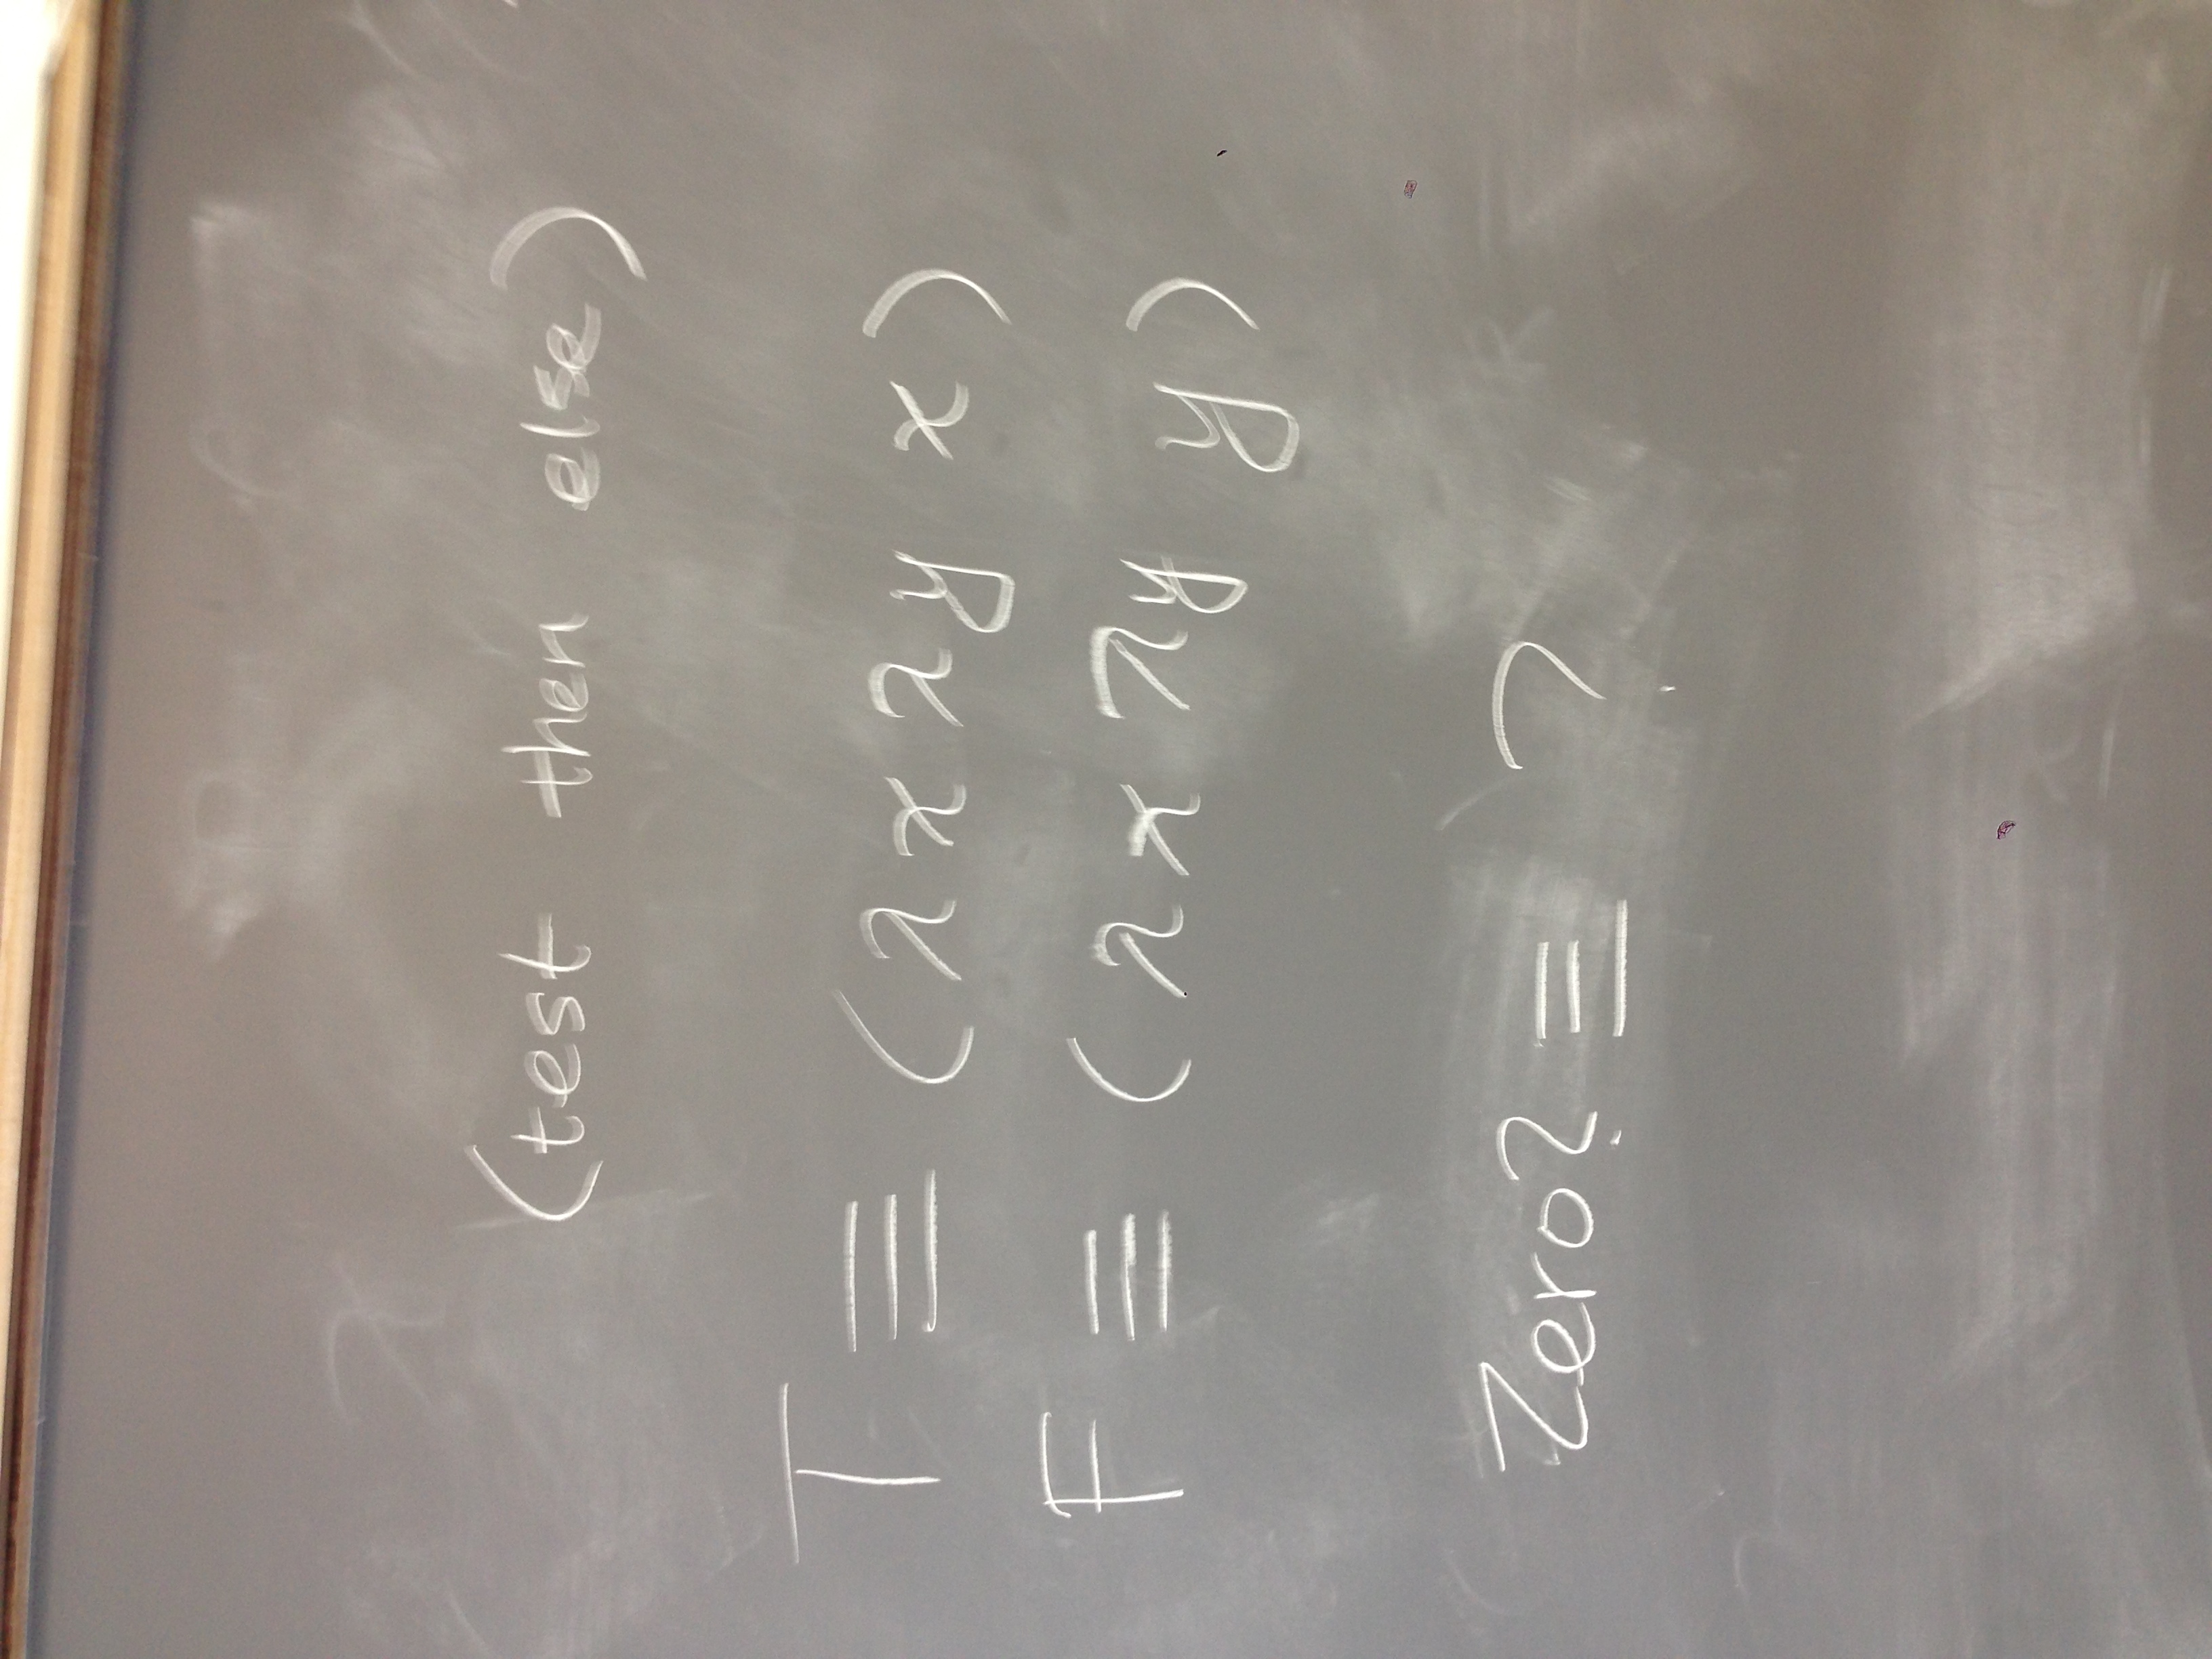 (test then else)
T ≡ (λx λy x)
F ≡ (λx λy y)
Zero? ≡ ?